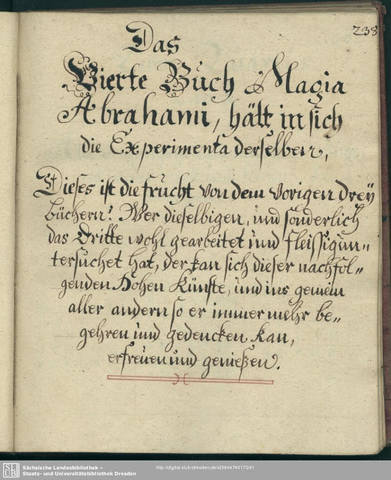 238
Das
Vierte Buch Magia
Abrahami, hält in sich
die Experimenta derselben,
Dieses ist die frucht von dem vorigen drey
büchern! Wer dieselbigen, und sonderlich
das Dritte wohl gearbeitet und fleissig un=
tersuchet hat, der kan sich dieser nachfol=
genden Hohen Künste, und ins gemein
aller andern so er immer mehr be=
gehren und gedencken kan,
erfreuen und genießen.
SLUB
Sächsische Landesbibliothek –
Staats- und Universitätsbibliothek Dresden